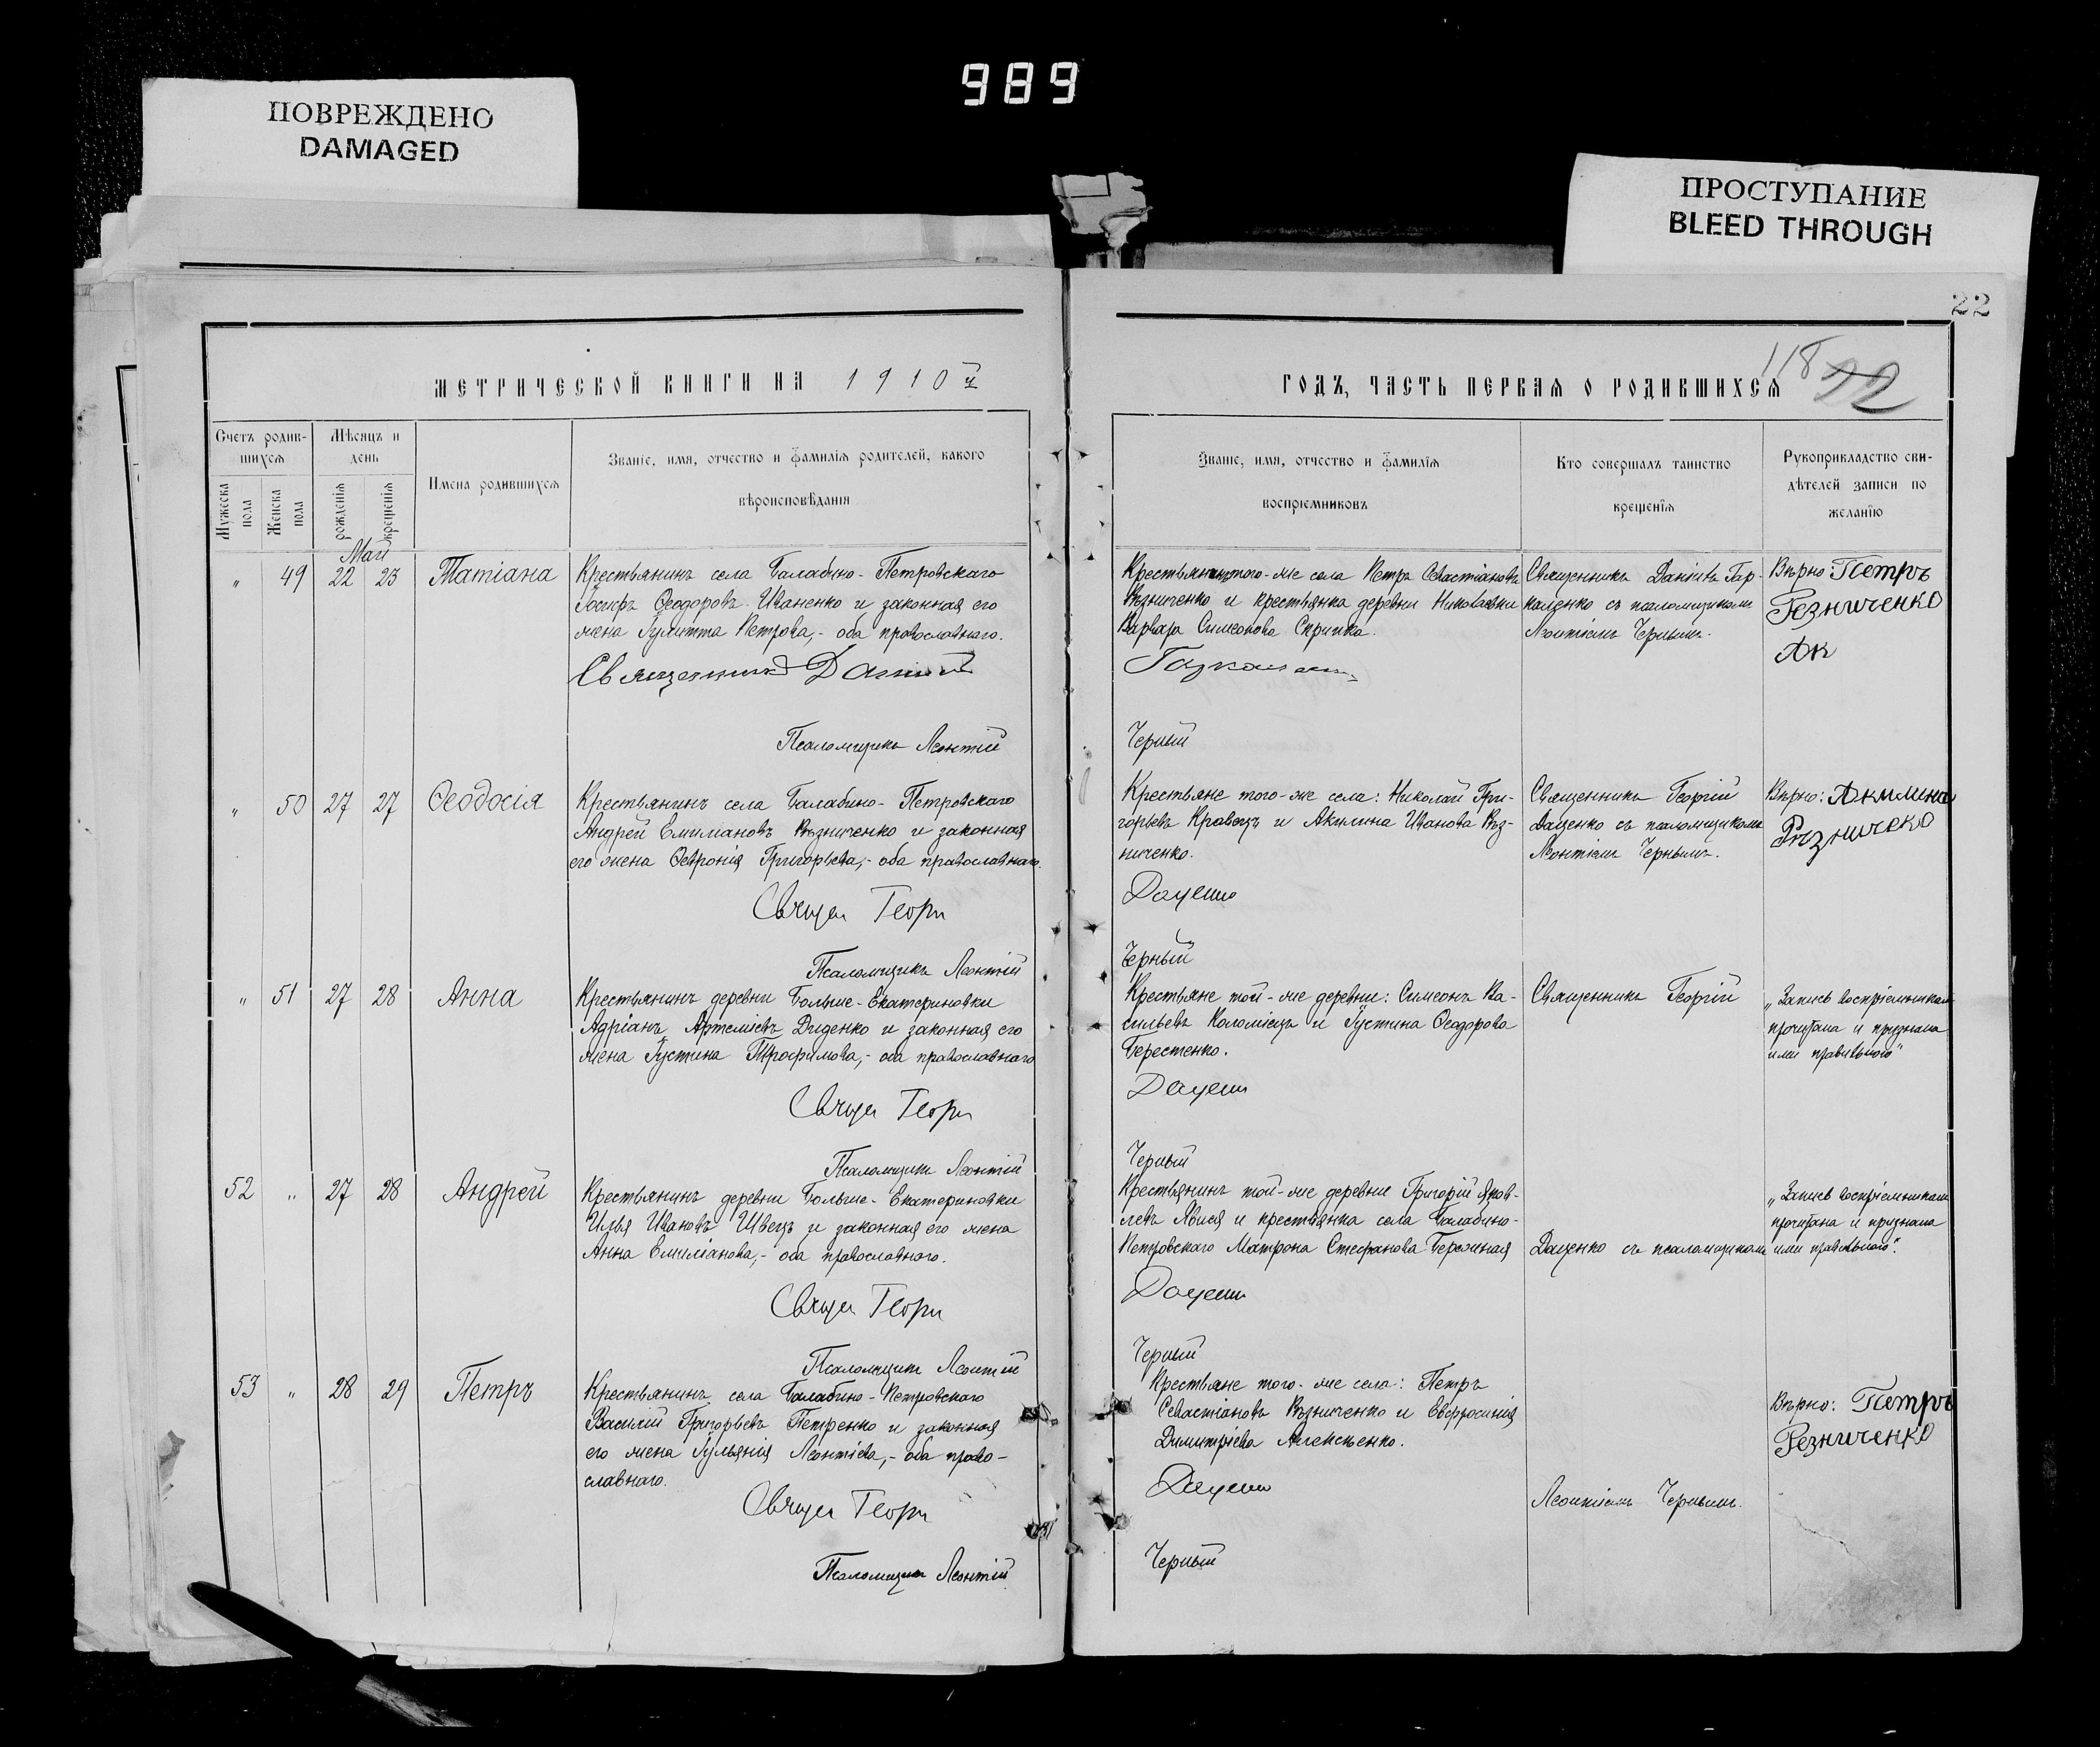 989
ПОВРЕЖДЕНО
DAMAGED
ПРОСТУПАНИЕ
BLEED THROUGH
22
МЕТРИЧЕСКОЙ КНИГИ НА 1910 г
Счетъ родив-
шихся
Мѣсяцъ и
день
Имена родившихся
Званіе, имя, отчество и фамилія родителей, какого
вѣроисповѣданія
Мужеска пола
Женска пола
рожденія
крещенія
Май
" 49 22 23 Татіана
Крестьянинъ села Балабино-Петровскаго
Іосифъ Ѳеодоровъ Иваненко и законная его
жена Іулитта Петрова,- оба православнаго.
Священникъ Даніилъ
Псаломщикъ Леонтій
" 50 27 27 Ѳеодосія
Крестьянинъ села Балабино-Петровскаго
Андрей Емиліановъ Рѣзниченко и законная
его жена Ѳевронія Григорьева,- оба православнаго.
Священ Георг
Псаломщикъ Леонтій
" 51 27 28 Анна
Крестьянинъ деревни Больше-Екатериновки
Адріанъ Артеміевъ Диденко и законная его
жена Іустина Трофимова,- оба православнаго
Священ Георг
Псаломщикъ Леонтій
52 " 27 28 Андрей
Крестьянинъ деревни Больше-Екатериновки
Илья Ивановъ Швецъ и законная его жена
Анна Емиліанова,- оба православнаго.
Священ Георг
Псаломщикъ Леонтій
53 " 28 29 Петръ
Крестьянинъ села Балабино-Петровскаго
Василій Григорьевъ Петренко и законная
его жена Іульянія Леонтіева,- оба право-
славнаго.
Священ Георг
Псаломщикъ Леонтій
ГОДЪ, ЧАСТЬ ПЕРВАЯ О РОДИВШИХСЯ
118 22
Званіе, имя, отчество и фамилія
воспріемниковъ
Кто совершалъ таинство
крещенія
Рукоприкладство сви-
дѣтелей записи по
желанію
Крестьянинъ того-же села Петръ Севастіановъ
Рѣзниченко и крестьянка деревни Николаевки
Варвара Симеонова Скрипка.
Черный
Священникъ Даніилъ Гар-
кашенко съ псаломщикомъ
Леонтіемъ Чернымъ.
Вѣрно: Петръ
Резниченко
Ак
Крестьяне того-же села: Николай Гри-
горьевъ Кравецъ и Акилина Иванова Рѣз-
ниченко.
Даценко
Черный
Священникъ Георгій
Даценко съ псаломщикомъ
Леонтіемъ Чернымъ.
Вѣрно: Акилина
Рѣзниченко
Крестьяне той-же деревни: Симеонъ Ва-
сильевъ Коломіецъ и Іустина Ѳеодорова
Берестенко.
Даценко
Черный
Священникъ Георгій
„Запись воспріемникам
прочитана и признана
ими правильною"
Крестьянинъ той-же деревни Григорій Яков-
левъ и крестьянка села Балабино-
Петровскаго Матрона Стефанова Бережная
Даценко
Черный
Даценко съ псаломщикомъ
„Запись воспріемникам
прочитана и признана
ими правильною".
Крестьяне того-же села: Петръ
Севастіановъ Рѣзниченко и Евфросинія
Димитріева Алексѣенко.
Даценко
Черный
Леонтіемъ Чернымъ.
Вѣрно: Петръ
Резниченко